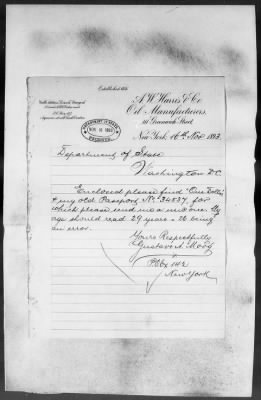 Established 1874
A.W. Harris & Co
Oil Manufacturers,
Greenwich Street
New York, 16th Nov 1893
DEPARTMENT OF STATE
NOV 18 1893
Department of State
Washington D.C.
Enclosed please find "One Dollar"
& my old Passport No. 34537, for
which please send me a new one. My
age should read 29 years - 26 being
an error.
Yours Respectfully
Gustave A. Moody
P.O. Box
New York